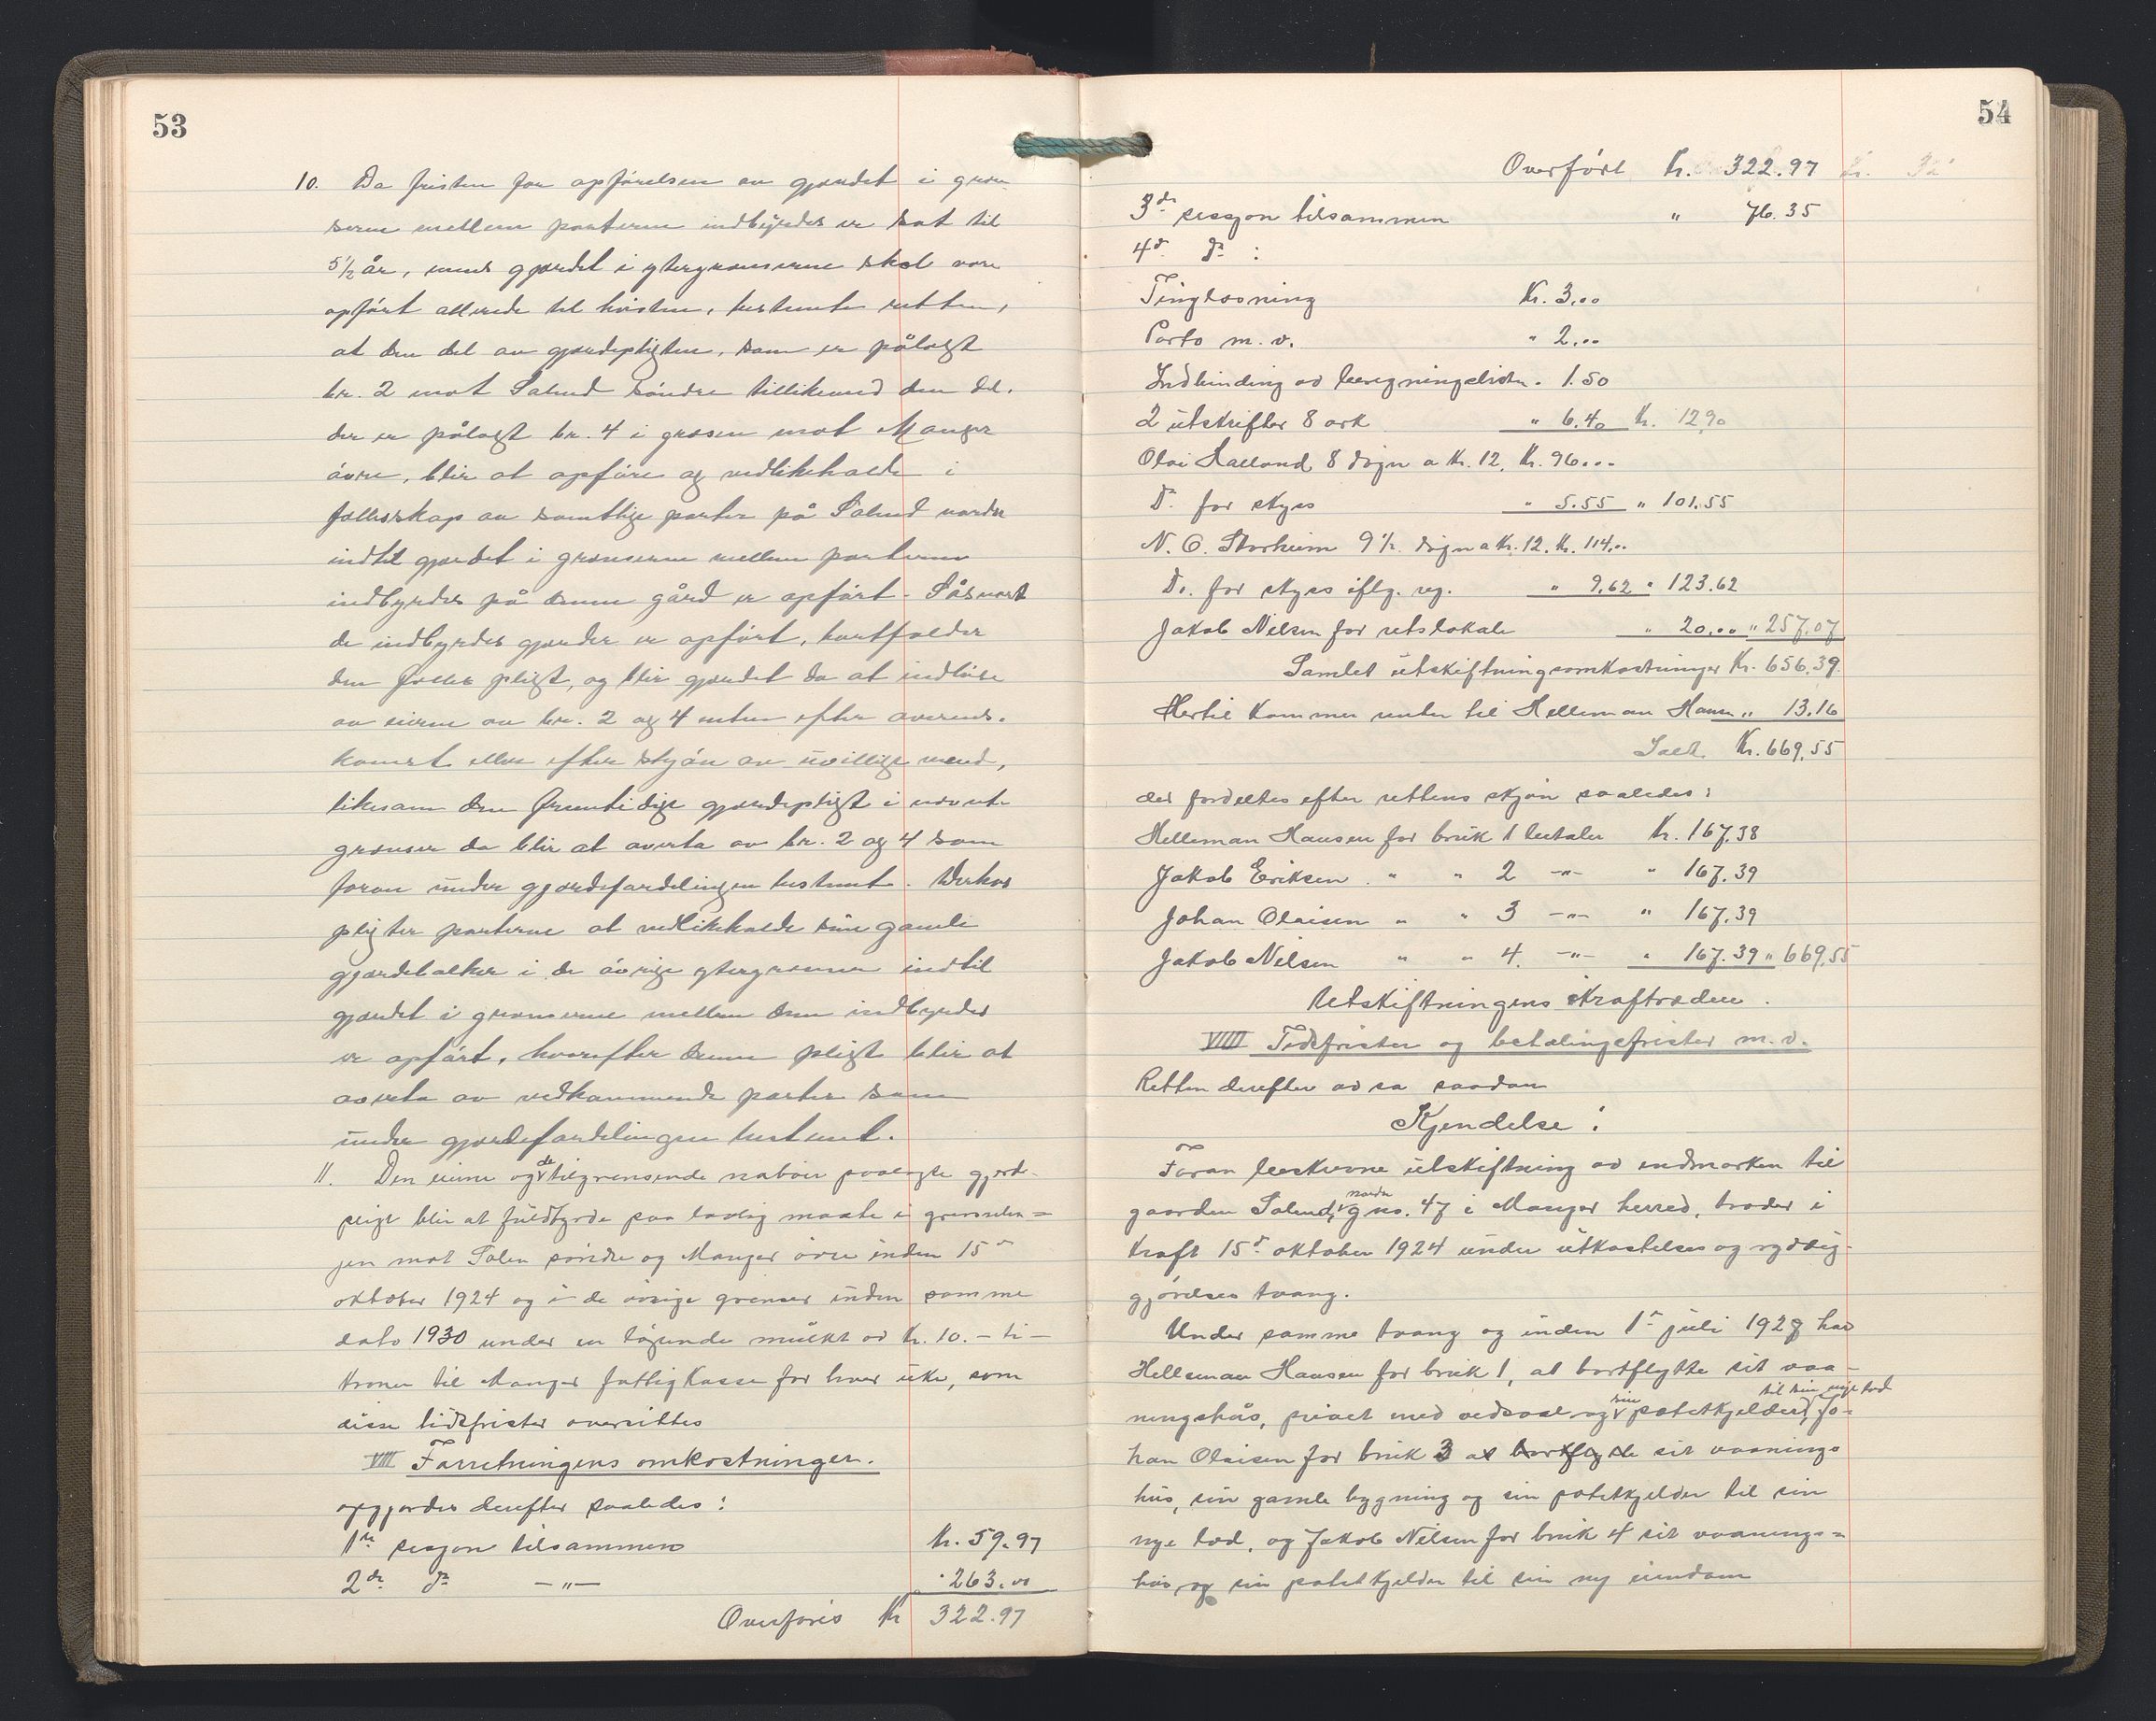 53
10. Da fristen for opførelsen av gjærdet i græn-
serne mellem parterne indbyrdes er sat til
5 1/2 år, mens gjærdet i ytergrænserne skal være
opført allerede til høsten, bestemte retten,
at den del av gjærdepligten, som er pålagt
br. 2 mot Salend søndre tillikemed den del,
der er pålagt br. 4 i græsen mot Manger
øvre, blir at opføre og vedlikeholde i
fællesskap av samtlige parter på Salend nordre
indtil gjærdet i grænserne mellem parterne
indbyrdes på denne gård er opført. Såsnart
de indbyrdes gjærder er opført, bortfalder
den fælles pligt, og blir gjærdet da at indløse
av eierne av br. 2 og 4 enten efter overens-
komst eller efter skjøn av uvillige mænd,
likesom den fremtidige gjærdepligt i nævnte
grænser da blir at overta av br. 2 og 4 som
foran under gjærdefordelingen bestemt. Derhos
pligter parterne at vedlikeholde sine gamle
gjærdebolker i de øvrige ytergrænser indtil
gjærdet i grænserne mellem dem indbyrdes
er opført, hvorefter denne pligt blir at
overta av vedkommende parter som
under gjærdefordelingen bestemt.
11. Den eierne og de tilgrensende naboer paalagte gjerd-
pligt blir at fuldbyrde paa lovlig maate i grenselin=
jen mot Salen søndre og Manger øvre inden 15de
oktober 1924 og i de øvrige grenser inden samme
dato 1930 under en løpende mulkt av Kr. 10.- ti-
kroner til Manger fattigkasse for hver uke, som
disse tidsfrister oversittes
VIII Forretningens omkostninger.
opgjordes derefter saaledes:
1ste sesjon tilsammen Kr. 59.97
2de do —"— " 263.00
Overføres Kr 322.97
54
Overført Kr. 322.97
3de sesjon tilsammen " 76.35
4de do :
Tinglæsning Kr. 3,00
Porto m. v. " 2,00
Indbinding av beregningslister " 1.50
2 utskrifter 8 ark " 6.40 Kr. 12,90
Olai Halland 8 døgn a Kr. 12, Kr. 96,00
Do for skyss " 5.55 " 101.55
N. O. Storheim 9 1/2 døgn a Kr. 12. Kr. 114,00
Do. for skyss iflg. reg. " 9,62 " 123.62
Jakob Nilsen for retslokale " 20,00 " 257,07
Samlet utskiftningsomkostninger Kr. 656.39.
Hertil kommer renter til Helleman Hansen " 13.16
Ialt Kr. 669,55
der fordeltes efter rettens skjøn saaledes:
Helleman Hansen for bruk 1 betaler Kr. 167,38
Jakob Eriksen " " 2 —"— " 167.39
Johan Olaisen " " 3 —"— " 167.39
Jakob Nilsen " " 4. —"— " 167.39 " 669,55
Utskiftningens Ikrafttræden.
VIIII Tidsfrister og betalingsfrister m. v.
Retten derefter avsa saadan
Kjendelse:
Foran beskrevne utskiftning av indmarken til
gaarden Salend, nordre gno. 47 i Manger herred, træder i
kraft 15de oktober 1924 under utkastelses og ryddig-
gjørelses tvang.
Under samme tvang og inden 1ste juli 1928 har
Helleman Hansen for bruk 1, at bortflytte sit vaa-
ningshus, privet med vedskaal og sin potetkjelder til sin nye tod, Jo-
han Olaisen for bruk 3 at bortflytte sit vaanings
hus, sin gamle bygning og sin potetkjelder til sin
nye tod, og Jakob Nilsen for bruk 4 sit vaanings=
hus og sin potetkjelder til sin ny eiendom